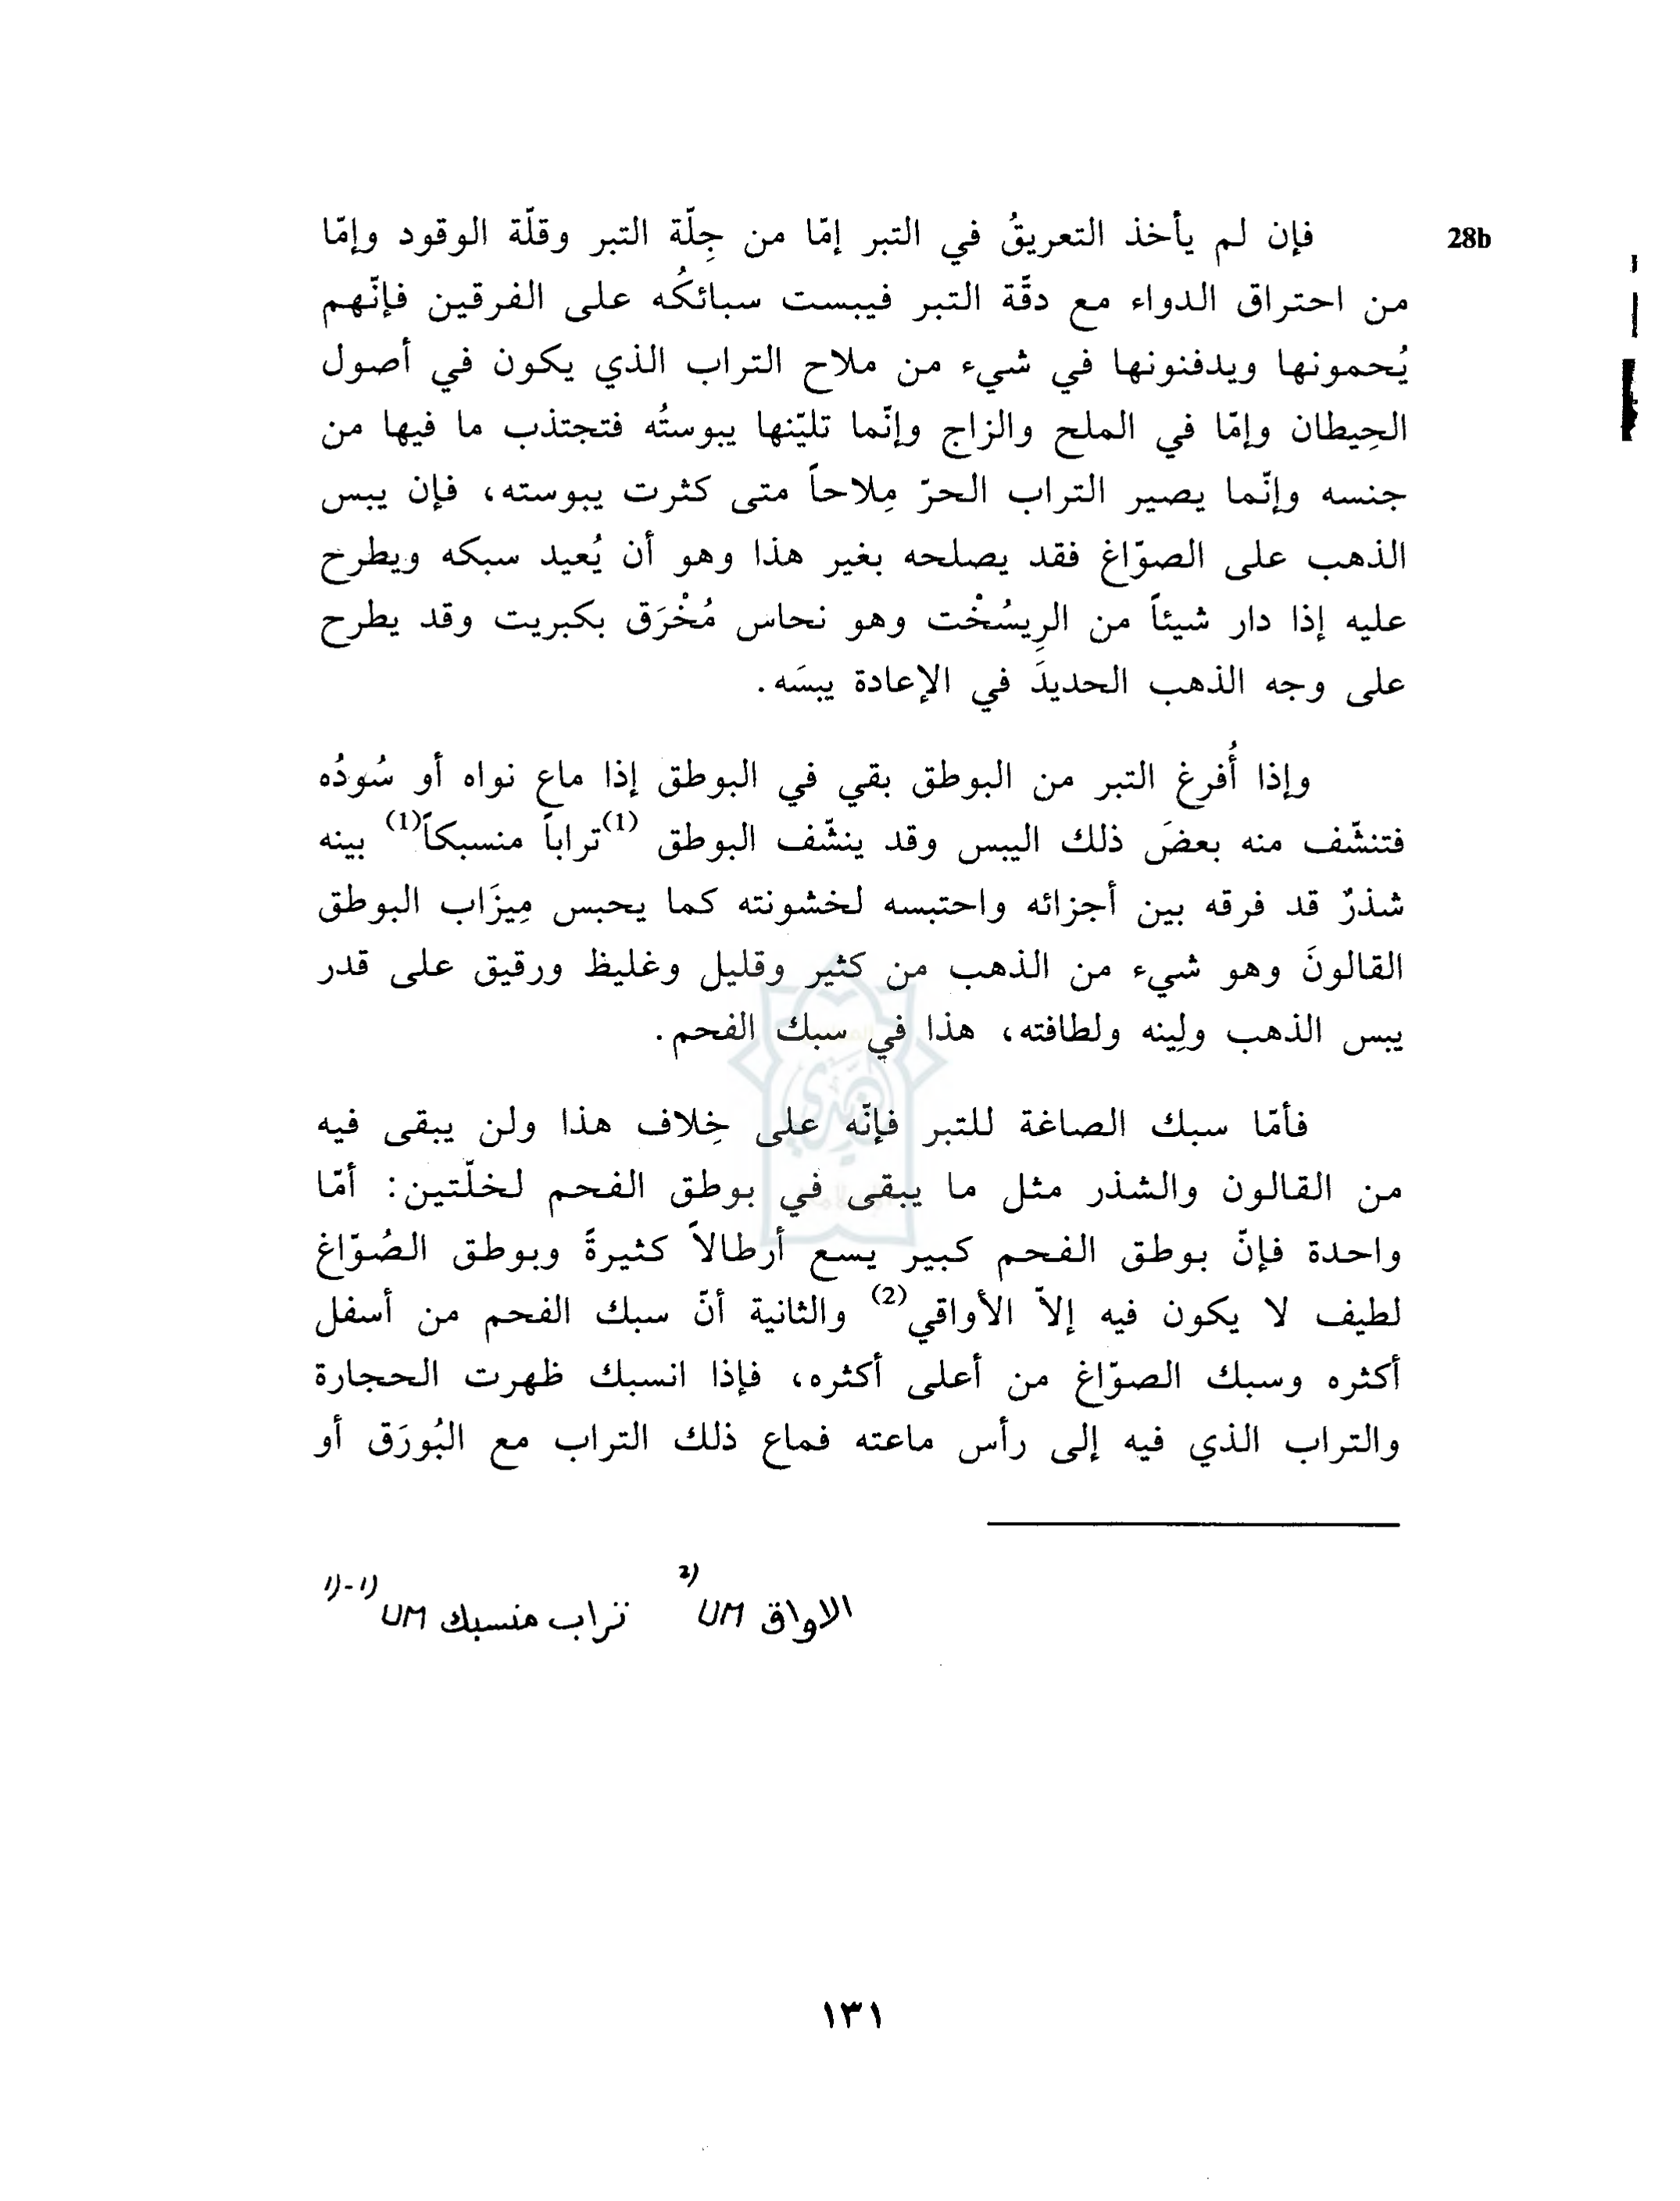 28b
فإن لم يأخذ التعريقُ في التبر إمّا من جِلّة التبر وقلّة الوقود وإمّا
من احتراق الدواء مع دقّة التبر فيبست سبائكُه على الفرقين فإنّهم
يُحمونها ويدفنونها في شيء من ملاح التراب الذي يكون في أصول
الحِيطان وإمّا في الملح والزاج وإنّما تليّنها يبوستُه فتجتذب ما فيها من
جنسه وإنّما يصير التراب الحرّ مِلاحاً متى كثرت يبوسته، فإن يبس
الذهب على الصوّاغ فقد يصلحه بغير هذا وهو أن يُعيد سبكه ويطرح
عليه إذا دار شيئاً من الرِيسُخْت وهو نحاس مُخْرَق بكبريت وقد يطرح
على وجه الذهب الحديدَ في الإعادة يبسَه.
وإذا أُفرغ التبر من البوطق بقي في البوطق إذا ماع نواه أو سُودُه
فتنشّف منه بعضَ ذلك اليبس وقد ينشّف البوطق (1)تراباً منسبكاً(1) بينه
شذرٌ قد فرقه بين أجزائه واحتبسه لخشونته كما يحبس مِيزَاب البوطق
القالونَ وهو شيء من الذهب من كثير وقليل وغليظ ورقيق على قدر
يبس الذهب ولِينه ولطافته، هذا في سبك الفحم.
فأمّا سبك الصاغة للتبر فإنّه على خِلاف هذا ولن يبقى فيه
من القالون والشذر مثل ما يبقى في بوطق الفحم لخلّتين: أمّا
واحدة فإنّ بوطق الفحم كبير يسع أرطالاً كثيرةً وبوطق الصُوّاغ
لطيف لا يكون فيه إلاّ الأواقي(2) والثانية أنّ سبك الفحم من أسفل
أكثره وسبك الصوّاغ من أعلى أكثره، فإذا انسبك ظهرت الحجارة
والتراب الذي فيه إلى رأس ماعته فماع ذلك التراب مع البُورَق أو
1)-1) UM تراب منسبك 2) UM الاواق
١٣١